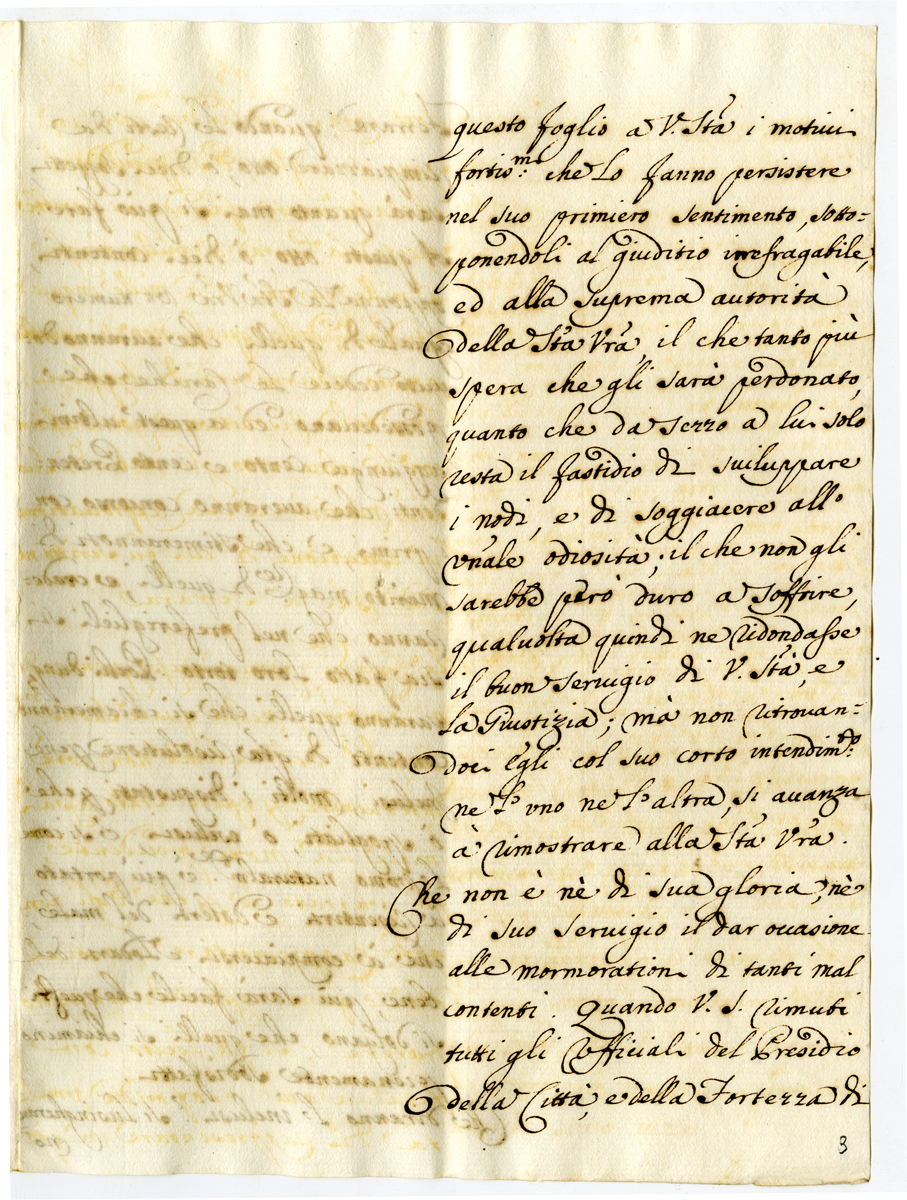 questo foglio a V. Stà i motivi
fortis.mi che Lo fanno persistere
nel suo primiero sentimento, sotto=
ponendoli al giuditio irrefragabile,
ed alla suprema autorità
della Stà Vrà, il che tanto più
spera che gli sarà perdonato,
quanto che da sezzo a lui solo
resta il fastidio di sviluppare
i nodi, e di soggiacere all'
vn͠ale odiosità; il che non gli
sarebbe però duro a soffrire,
qualvolta quindi ne ridondasse
il buon servigio di V. Stà, e
la Giustizia; mà non ritrovan=
doci Egli col suo corto intendim.to
ne l'vno ne l'altra, si avanza
à rimostrare alla Stà Vrà.
Che non è nè di sua gloria, nè
di suo servigio il dar ovasione
alle mormorationi di tanti mal
contenti. Quando V. S. rimuti
tutti gli Vfficiali del Presidio
della Città, e della Fortezza di
3